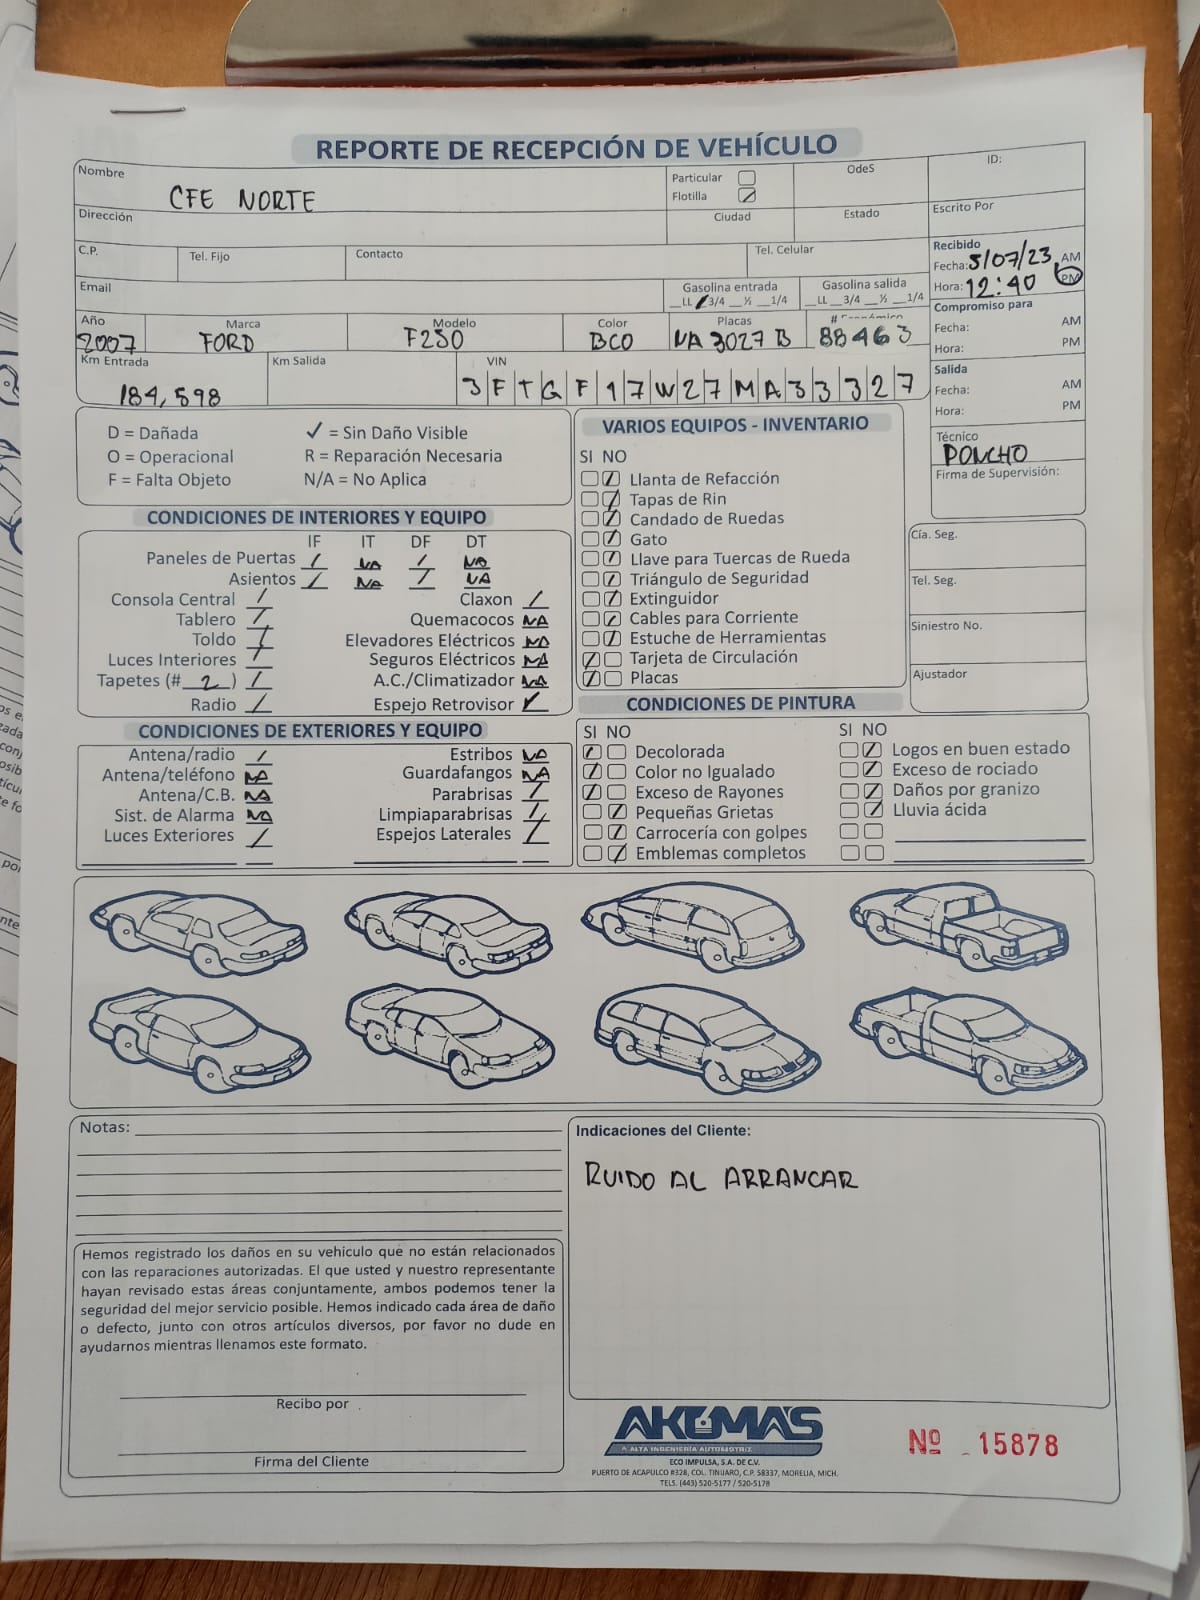 REPORTE DE RECEPCIÓN DE VEHÍCULO
Nombre
CFE NORTE
Particular
Flotilla
OdeS
ID:
Dirección
Ciudad
Estado
Escrito Por
C.P.
Tel. Fijo
Contacto
Tel. Celular
Recibido
Fecha: 5/07/23 AM
Hora: 12:40 PM
Email
Gasolina entrada
__LL __3/4 __½ __1/4
Gasolina salida
__LL __3/4 __½ __1/4
Compromiso para
Fecha: AM
Hora: PM
Año
2007
Marca
FORD
Modelo
F250
Color
BCO
Placas
NA 3027 B
# Económico
88463
Km Entrada
184,598
Km Salida
VIN
3 F T G F 1 7 W 2 7 M A 3 3 3 2 7
Salida
Fecha: AM
Hora: PM
Técnico
PONCHO
Firma de Supervisión:
D = Dañada ✓ = Sin Daño Visible
O = Operacional R = Reparación Necesaria
F = Falta Objeto N/A = No Aplica
CONDICIONES DE INTERIORES Y EQUIPO
IF IT DF DT
Paneles de Puertas / NA / NA
Asientos / NA / NA
Consola Central / Claxon /
Tablero / Quemacocos NA
Toldo / Elevadores Eléctricos NA
Luces Interiores / Seguros Eléctricos NA
Tapetes (# 2 ) / A.C./Climatizador NA
Radio / Espejo Retrovisor ✓
CONDICIONES DE EXTERIORES Y EQUIPO
Antena/radio / Estribos NA
Antena/teléfono NA Guardafangos NA
Antena/C.B. NA Parabrisas /
Sist. de Alarma NA Limpiaparabrisas /
Luces Exteriores / Espejos Laterales /
VARIOS EQUIPOS - INVENTARIO
SI NO
Llanta de Refacción
Tapas de Rin
Candado de Ruedas
Gato
Llave para Tuercas de Rueda
Triángulo de Seguridad
Extinguidor
Cables para Corriente
Estuche de Herramientas
Tarjeta de Circulación
Placas
Cía. Seg.
Tel. Seg.
Siniestro No.
Ajustador
CONDICIONES DE PINTURA
SI NO SI NO
Decolorada Logos en buen estado
Color no Igualado Exceso de rociado
Exceso de Rayones Daños por granizo
Pequeñas Grietas Lluvia ácida
Carrocería con golpes
Emblemas completos
Notas:
Indicaciones del Cliente:
RUIDO AL ARRANCAR
Hemos registrado los daños en su vehículo que no están relacionados
con las reparaciones autorizadas. El que usted y nuestro representante
hayan revisado estas áreas conjuntamente, ambos podemos tener la
seguridad del mejor servicio posible. Hemos indicado cada área de daño
o defecto, junto con otros artículos diversos, por favor no dude en
ayudarnos mientras llenamos este formato.
Recibo por
Firma del Cliente
AKUMA'S
ALTA INGENIERÍA AUTOMOTRIZ
ECO IMPULSA, S.A. DE C.V.
PUERTO DE ACAPULCO #328, COL. TINIJARO, C.P. 58337, MORELIA, MICH.
TELS. (443) 520-5177 / 520-5178
Nº 15878